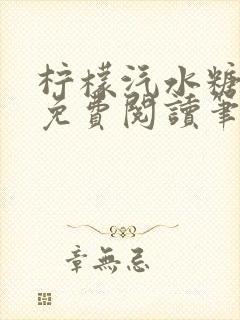 柠檬汽水糖
免費閱讀筆
章無忌